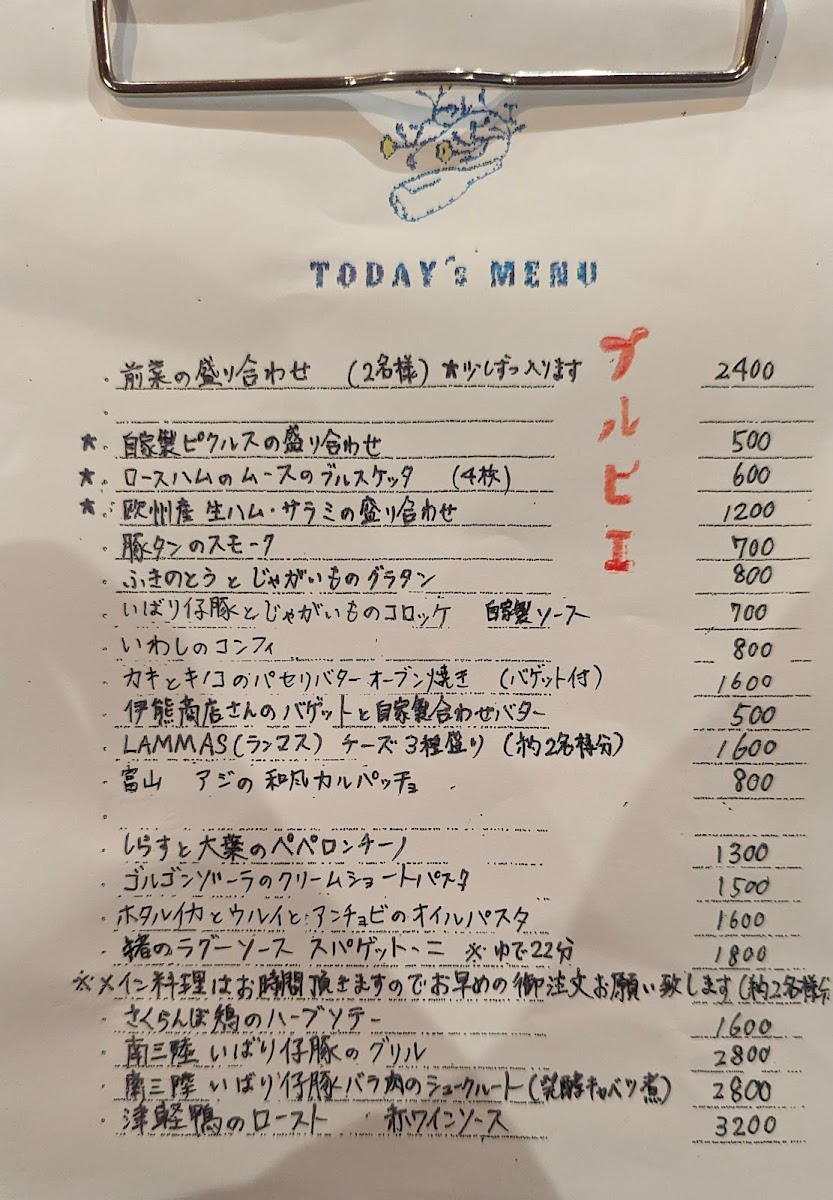 TODAY's MENU
プルピエ
・前菜の盛り合わせ (2名様) ★少しずつ入ります 2400
・
★・自家製ピクルスの盛り合わせ 500
★・ロースハムのムースのブルスケッタ (4枚) 600
★・欧州産 生ハム・サラミの盛り合わせ 1200
・豚タンのスモーク 700
・ふきのとうとじゃがいものグラタン 800
・いばり仔豚とじゃがいものコロッケ 自家製ソース 700
・いわしのコンフィ 800
・カキとキノコのパセリバターオーブン焼き (バゲット付) 1600
・伊熊商店さんのバゲットと自家製合わせバター 500
・LAMMAS(ランマス) チーズ3種盛り (約2名様分) 1600
・富山 アジの和風カルパッチョ 800
・
・しらすと大葉のペペロンチーノ 1300
・ゴルゴンゾーラのクリームショートパスタ 1500
・ホタルイカとウルイとアンチョビのオイルパスタ 1600
・猪のラグーソース スパゲットーニ ※ゆで22分 1800
※メイン料理はお時間頂きますのでお早めの御注文お願い致します(約2名様分
・さくらんぼ鶏のハーブソテー 1600
・南三陸 いばり仔豚のグリル 2800
・南三陸 いばり仔豚バラ肉のシュークルート(発酵キャベツ煮) 2800
・津軽鴨のロースト 赤ワインソース 3200